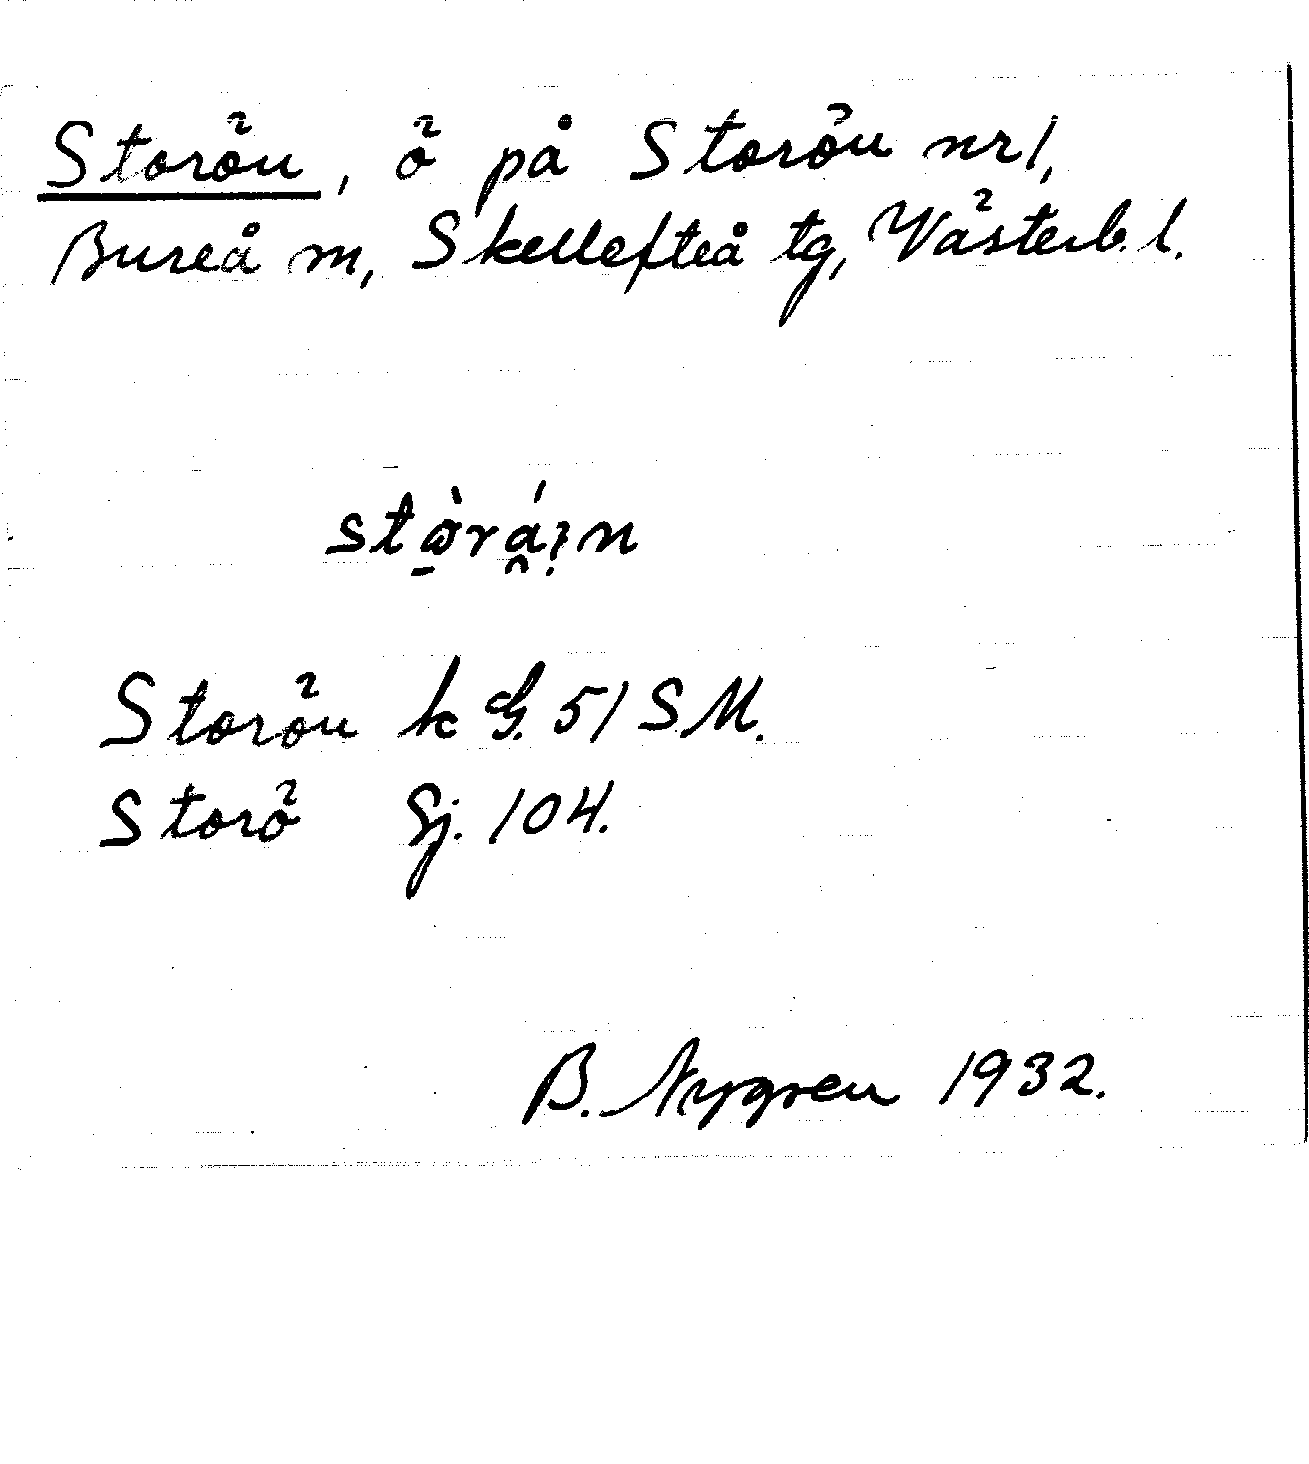 Storön, ö på Storön nr 1,
Bureå m, Skellefteå tg, Västerb. l.
Storön k G. 51 S.M.
Storö Sj. 104.
B. Nygren 1932.